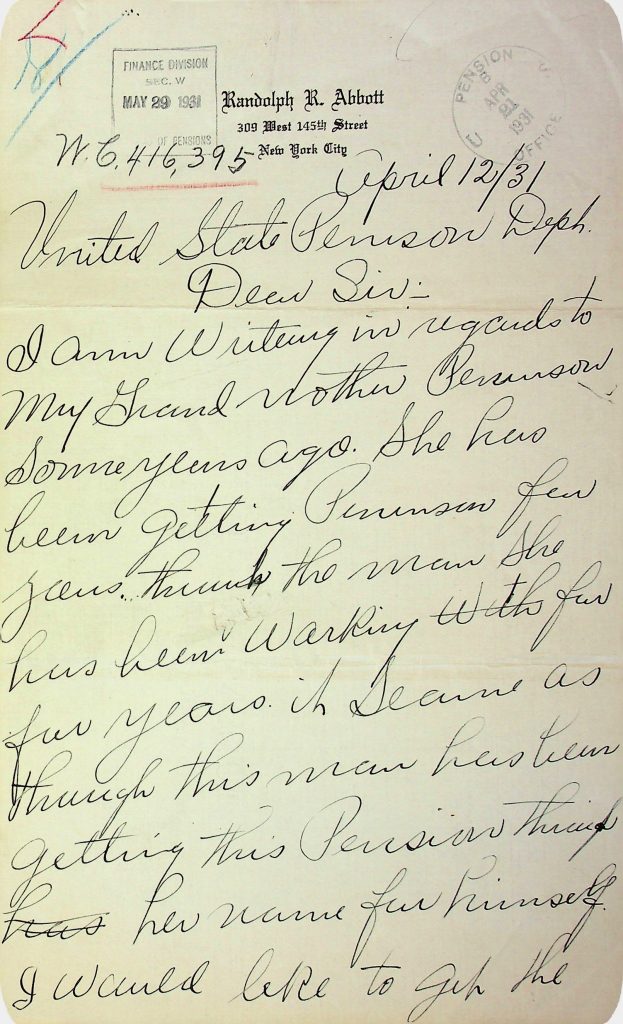 FINANCE DIVISION
SEC. W
MAY 29 1931
OF PENSIONS
U S PENSION OFFICE
8 APR 21 1931
Randolph R. Abbott
309 West 145th Street
New York City
W.C. 416,395
April 12/31
United State Penison Deph.
Dear Sir:-
I am Writeing in regards to
My Grand mother Peninson
Some years ago. She has
been getting Peninson fur
years. through the man She
has been Warking With fur
fur years. it Seame as
though this man has been
getting this Pension through
has her name fur himself.
I Would like to get the